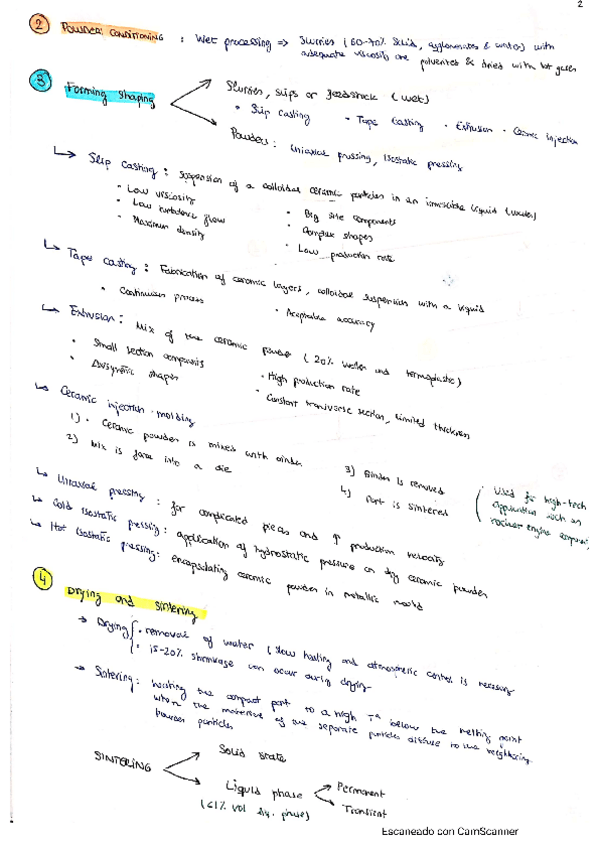 2
2 POWDER CONDITIONING : Wet processing => Slurries (60-70% solid, agglomerates & water) with
adequate viscosity are pulverited & dried with hot gases
3 Forming shaping
Slurries, slips or feedstock (wet)
• Slip casting • Tape casting • Extrusion • Ceramic injection
Powders: uniaxial pressing, isostatic pressing
↳ Slip casting: suspension of a colloidal ceramic particles in an inmiscible liquid (water)
• Low viscosity • Big size components
• Low turbulence flow • Complex shapes
• Maximum density • Low production rate
↳ Tape casting: Fabrication of ceramic layers, colloidal suspension with a liquid
• Continuous process • Aceptable accuracy
↳ Extrusion: Mix of the ceramic powder (20% water and termoplastic)
• Small section components • High production rate
• Axisymetric shapes • Constant transverse section, limited thickness
↳ Ceramic injection molding
1) • Ceramic powder is mixed with binder 3) Binder is removed
2) Mix is force into a die 4) Part is sintered
( Used for high-tech
application such as
nuclear engine
↳ Uniaxial pressing: for complicated pieces and ↑ production velocity
↳ Cold isostatic pressing: application of hydrostatic pressure on dry ceramic powder
↳ Hot isostatic pressing: encapsulating ceramic powder in metallic mould
4 Drying and sintering
→ Drying { • removal of water (slow heating and atmospheric control is necessary
• 15-20% shrinkage can occur during drying
→ Sintering: heating the compact part to a high Tª below the melting point
when the material of the separate particles difuse to the neighboring
powder particles
SINTERING
Solid state
Liquid phase
Permanent
Transient
(<1% vol liq. phase)
Escaneado con CamScanner